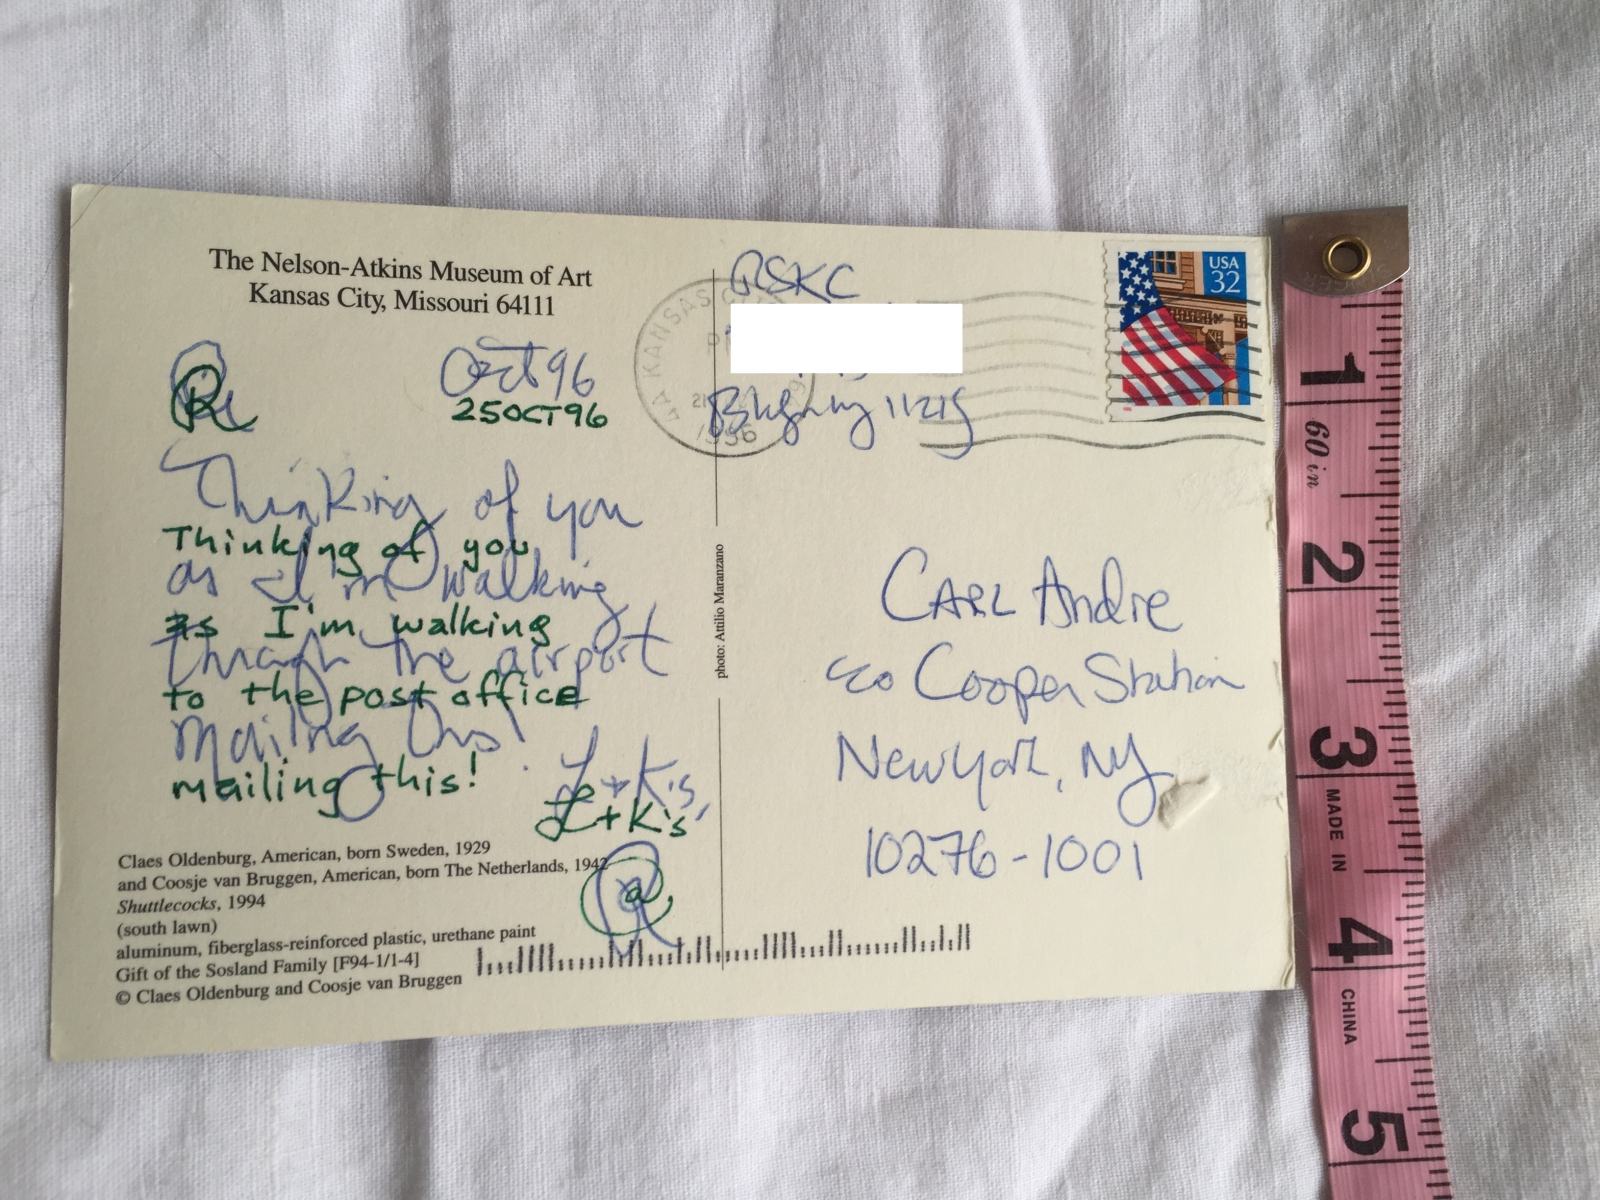 The Nelson-Atkins Museum of Art
Kansas City, Missouri 64111
Oct 96
25OCT96
Thinking of you
Thinking of you
as I'm walking
as I'm walking
through the airport
to the post office
mailing this!
mailing this!
L+K's,
L+K's
Claes Oldenburg, American, born Sweden, 1929
and Coosje van Bruggen, American, born The Netherlands, 1942
Shuttlecocks, 1994
(south lawn)
aluminum, fiberglass-reinforced plastic, urethane paint
Gift of the Sosland Family [F94-1/1-4]
© Claes Oldenburg and Coosje van Bruggen
photo: Attilio Maranzano
RSKC
11215
KANSAS
PM
1996
USA
32
CARL Andre
c/o Cooper Station
New York, NY
10276-1001
1
60 in
2
3
MADE IN
4
CHINA
5